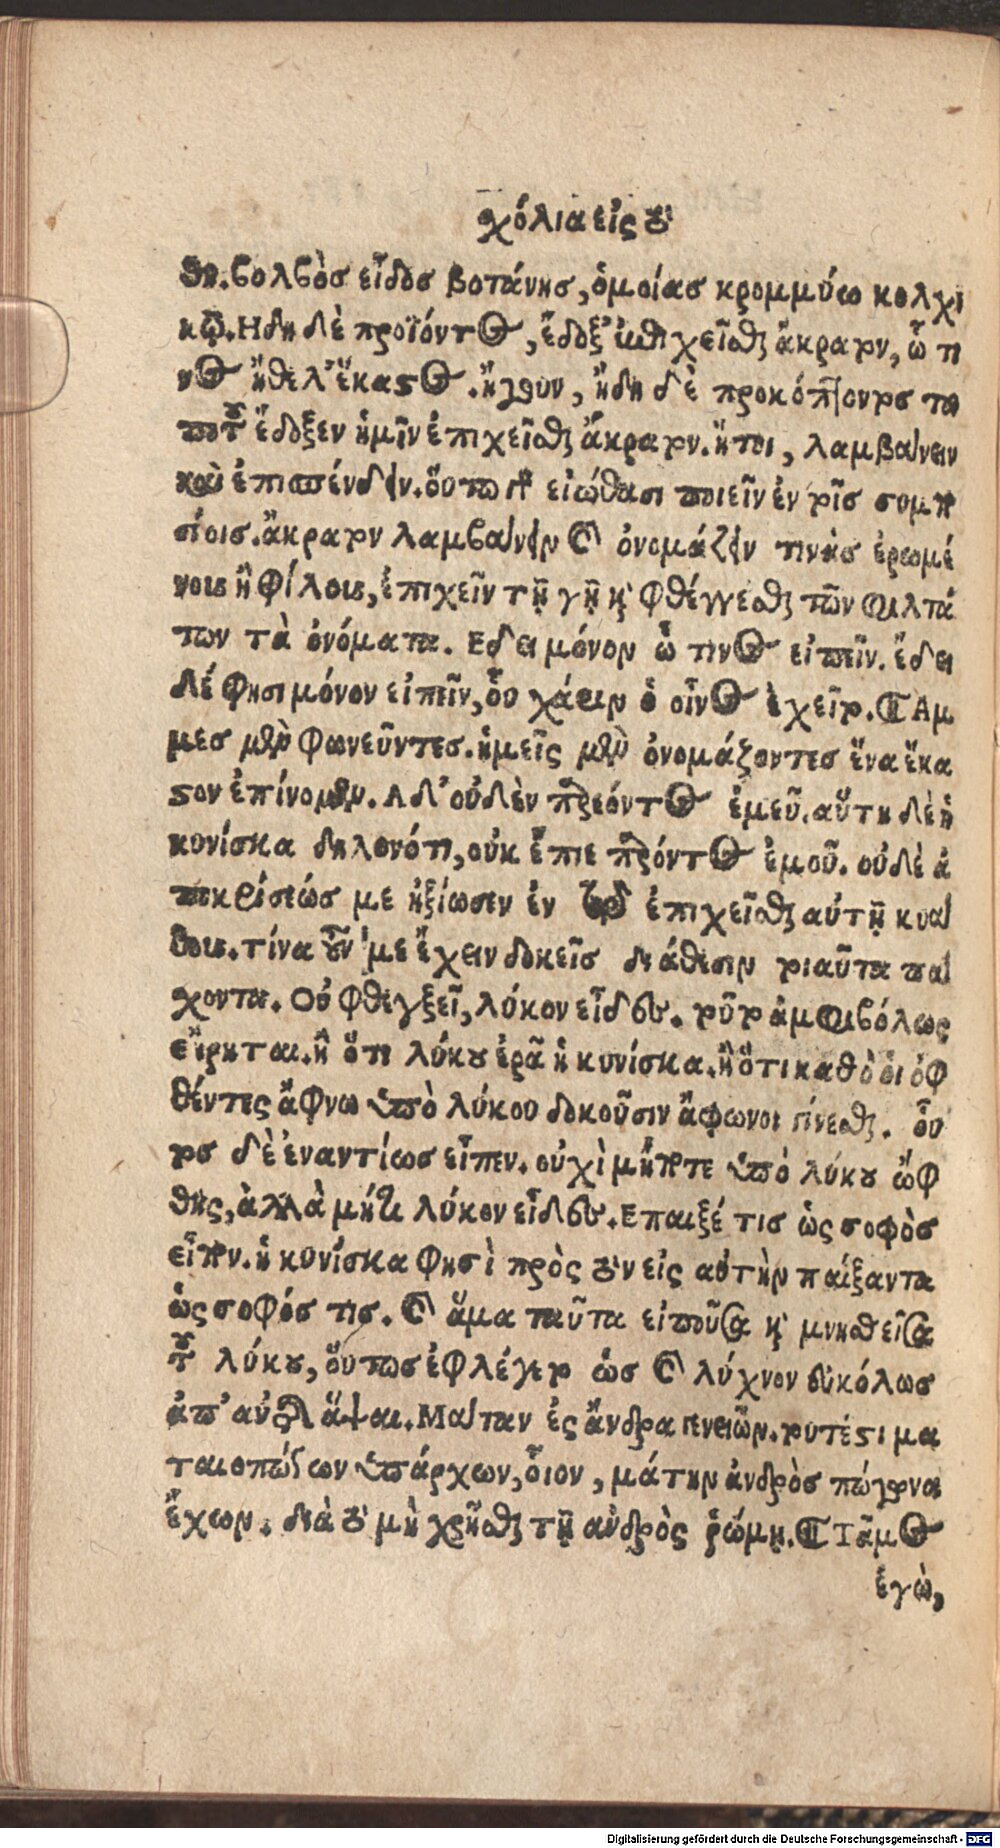 χόλια εἰς τὸ
θη. βολβὸς εἶδος βοτάνης, ὁμοίας κρομμύῳ κολχι
κῷ. Ηδη δὲ προϊόντος, ἔδοξ' ἐπιχεῖσθαι ἄκρατον, ὧ τι
νος ἤθελ' ἕκαστος. ἤγουν, ἤδη δὲ προκόπτοντος τοῦ
πότου ἔδοξεν ἡμῖν ἐπιχεῖσθαι ἄκρατον. ἤτοι, λαμβαίνειν
καὶ ἐπισπένδειν. οὕτω γὰρ εἰώθασι ποιεῖν ἐν τοῖς συμπο
σίοις. ἄκρατον λαμβαίνειν καὶ ὀνομάζειν τινὰς ἐρωμέ
νους ἢ φίλους, ἐπιχεῖν τῇ γῇ καὶ φθέγγεσθαι τῶν φιλτά
των τὰ ὀνόματα. Εδει μόνον ὧ τινος εἰπεῖν. ἔδει
δέ φησι μόνον εἰπεῖν, οὗ χάριν ὁ οἶνος ἐχεῖτο. Αμ
μες μὲν φωνεῦντες. ἡμεῖς μὲν ὀνομάζοντες ἕνα ἕκα
στον ἐπίνομεν. Α δ' οὐδὲν παρεόντος ἐμεῦ. αὕτη δὲ ἡ
κυνίσκα δηλονότι, οὐκ ἔπιε παρόντος ἐμοῦ. οὐδὲ ἀ
ποκρίσεώς με ἠξίωσεν ἐν τῷ ἐπιχεῖσθαι αὐτῇ κυα
θους. τίνα οὖν με ἔχειν δοκεῖς διάθεσιν τοιαῦτα πα
χοντα. Οὐ φθεγξεῖ, λύκον εἶδες. τοῦτο ἀμφιβόλως
εἴρηται. ἢ ὅτι λύκου ἐρᾷ ἡ κυνίσκα. ἢ ὅτι καθὸ οἱ ὀφ
θέντες ἄφνω ὑπὸ λύκου δοκοῦσιν ἄφωνοι γίνεσθαι. οὗ
τος δὲ ἐναντίως εἶπεν. οὐχὶ μήποτε ὑπὸ λύκου ὤφ
θης, ἀλλὰ μήτι λύκον εἶδες. Επαιξέ τις ὡς σοφὸς
εἶπεν. ἡ κυνίσκα φησὶ πρὸς τὸν εἰς αὐτὴν παίξαντα
ὡς σοφός τις. καὶ ἅμα ταῦτα εἰποῦσα καὶ μνησθεῖσα
τοῦ λύκου, οὕτως ἐφλέγετο ὡς καὶ λύχνον εὐκόλως
ἀπ' αὐτῆς ἅψαι. Μαίταν ἐς ἄνδρα γενειῶν. τουτέστι μα
ταιοπώγων ὑπάρχων, οἷον, μάτην ἀνδρὸς πώγωνα
ἔχων. διὰ τὸ μὴ χρῆσθαι τῇ ἀνδρὸς ῥώμῃ. Τᾶμος
ἐγὼ,
Digitalisierung gefördert durch die Deutsche Forschungsgemeinschaft - DFG